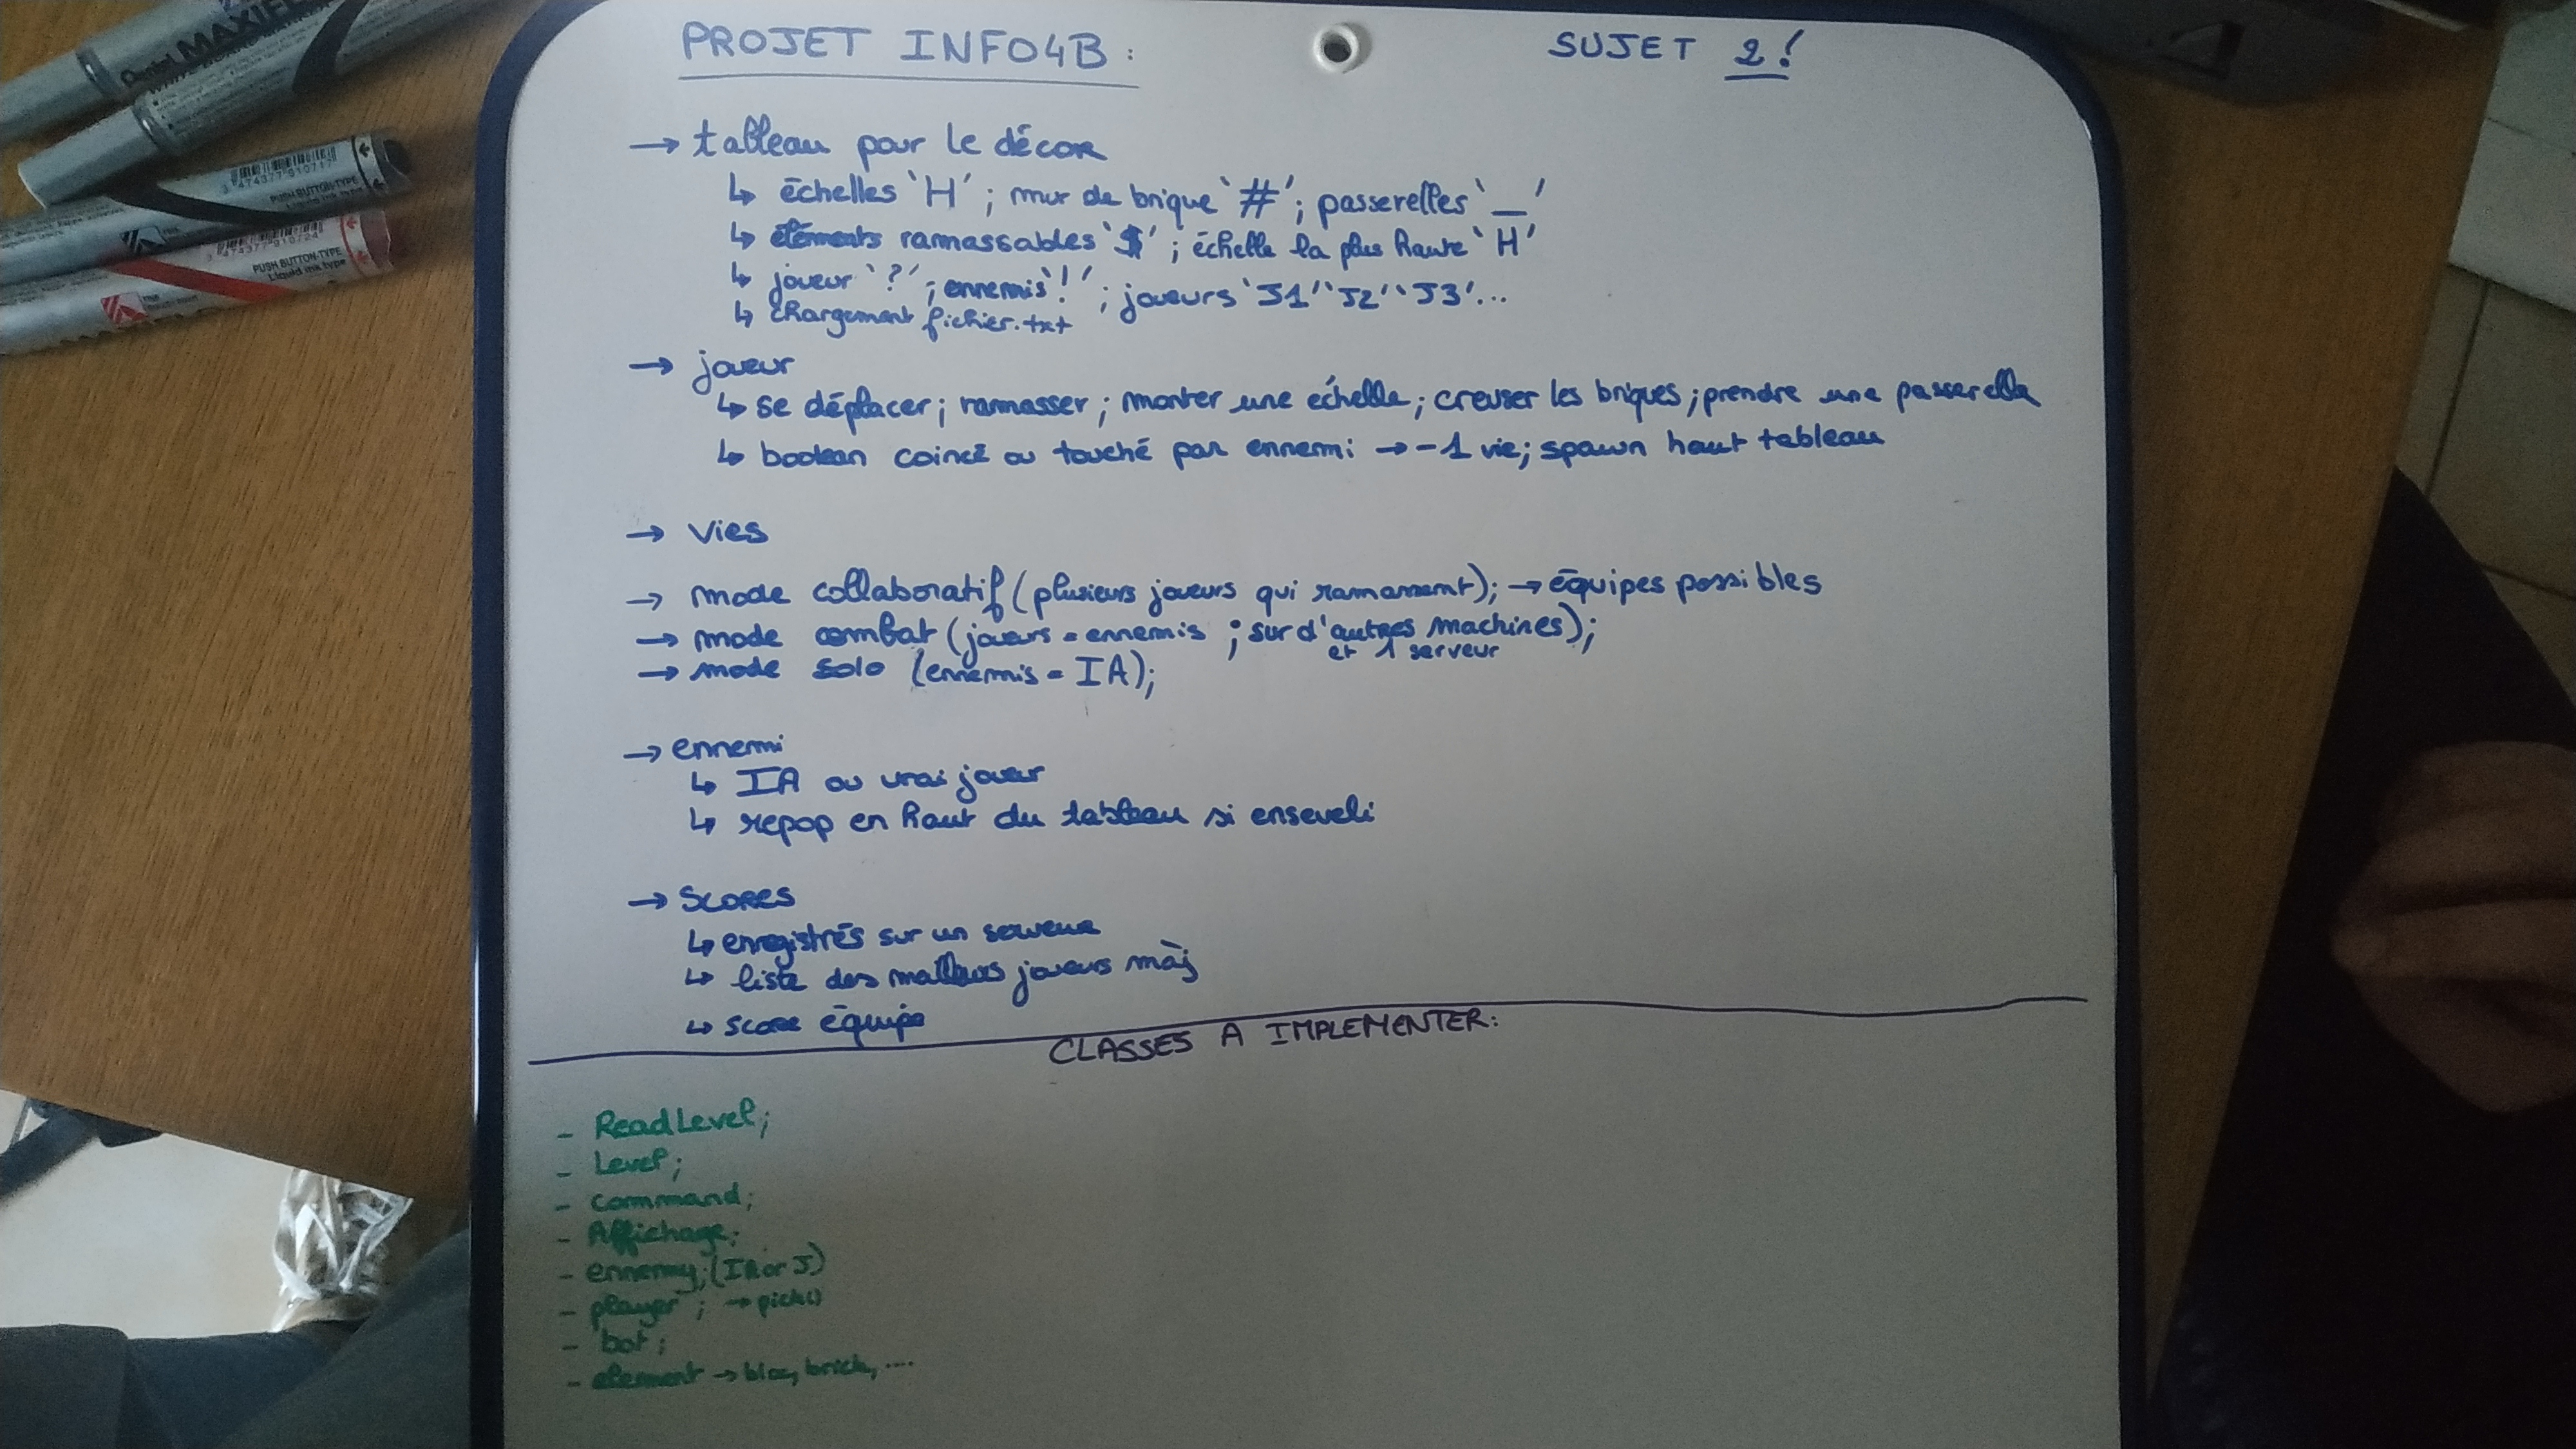 PROJET INFO4B : SUJET 2 !
→ tableau pour le décor
↳ échelles 'H' ; mur de brique '#' ; passerelles '_'
↳ éléments ramassables '$' ; échelle la plus haute 'H'
↳ joueur '?' ; ennemis '!' ; joueurs 'J1' 'J2' 'J3'...
↳ chargement fichier.txt
→ joueur
↳ se déplacer ; ramasser ; monter une échelle ; creuser les briques ; prendre une passerelle
↳ boolean coincé ou touché par ennemi → -1 vie ; spawn haut tableau
→ vies
→ mode collaboratif (plusieurs joueurs qui ramassent) ; → équipes possibles
→ mode combat (joueurs = ennemis ; sur d'autres machines) ;
et 1 serveur
→ mode solo (ennemis = IA) ;
→ ennemi
↳ IA ou vrai joueur
↳ repop en haut du tableau si enseveli
→ SCORES
↳ enregistrés sur un serveur
↳ liste des meilleurs joueurs màj
↳ score équipe
CLASSES A IMPLEMENTER :
- ReadLevel ;
- Level ;
- command ;
- Affichage ;
- ennemy ; (IA or J)
- player ; →
- bot ;
- element → bloc, brick, ...
PUSH BUTTON TYPE
Liquid ink type
PUSH BUTTON TYPE
Pentel MAXIF